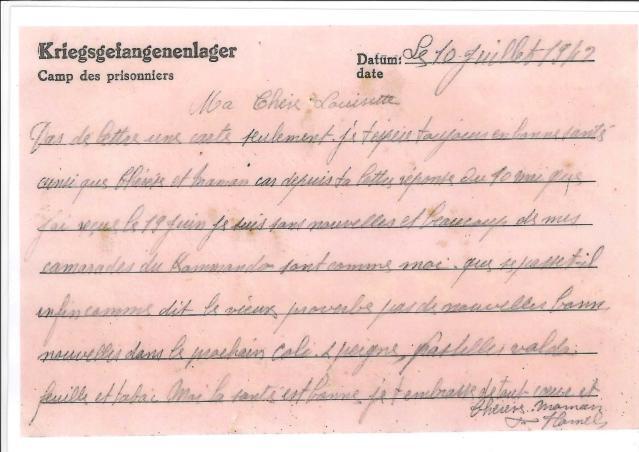 Kriegsgefangenenlager
Camp des prisonniers
Datum: Le 10 Juillet 194
date
Ma Chère Louisette
Pas de lettre une carte seulement. je t'espère toujours en bonne santé
ainsi que Thérèse et maman car depuis ta lettre réponse du 10 mai que
j'ai reçue le 19 juin je suis sans nouvelles et beaucoup de mes
camarades du Kommando sont comme moi. que se passe t-il
enfin comme dit le vieux proverbe pas de nouvelles bonne
nouvelles dans le prochain colis peigne, pastilles valda
feuille et tabac. Moi la santé est bonne je t'embrasse de tout coeur et
Thérèse maman